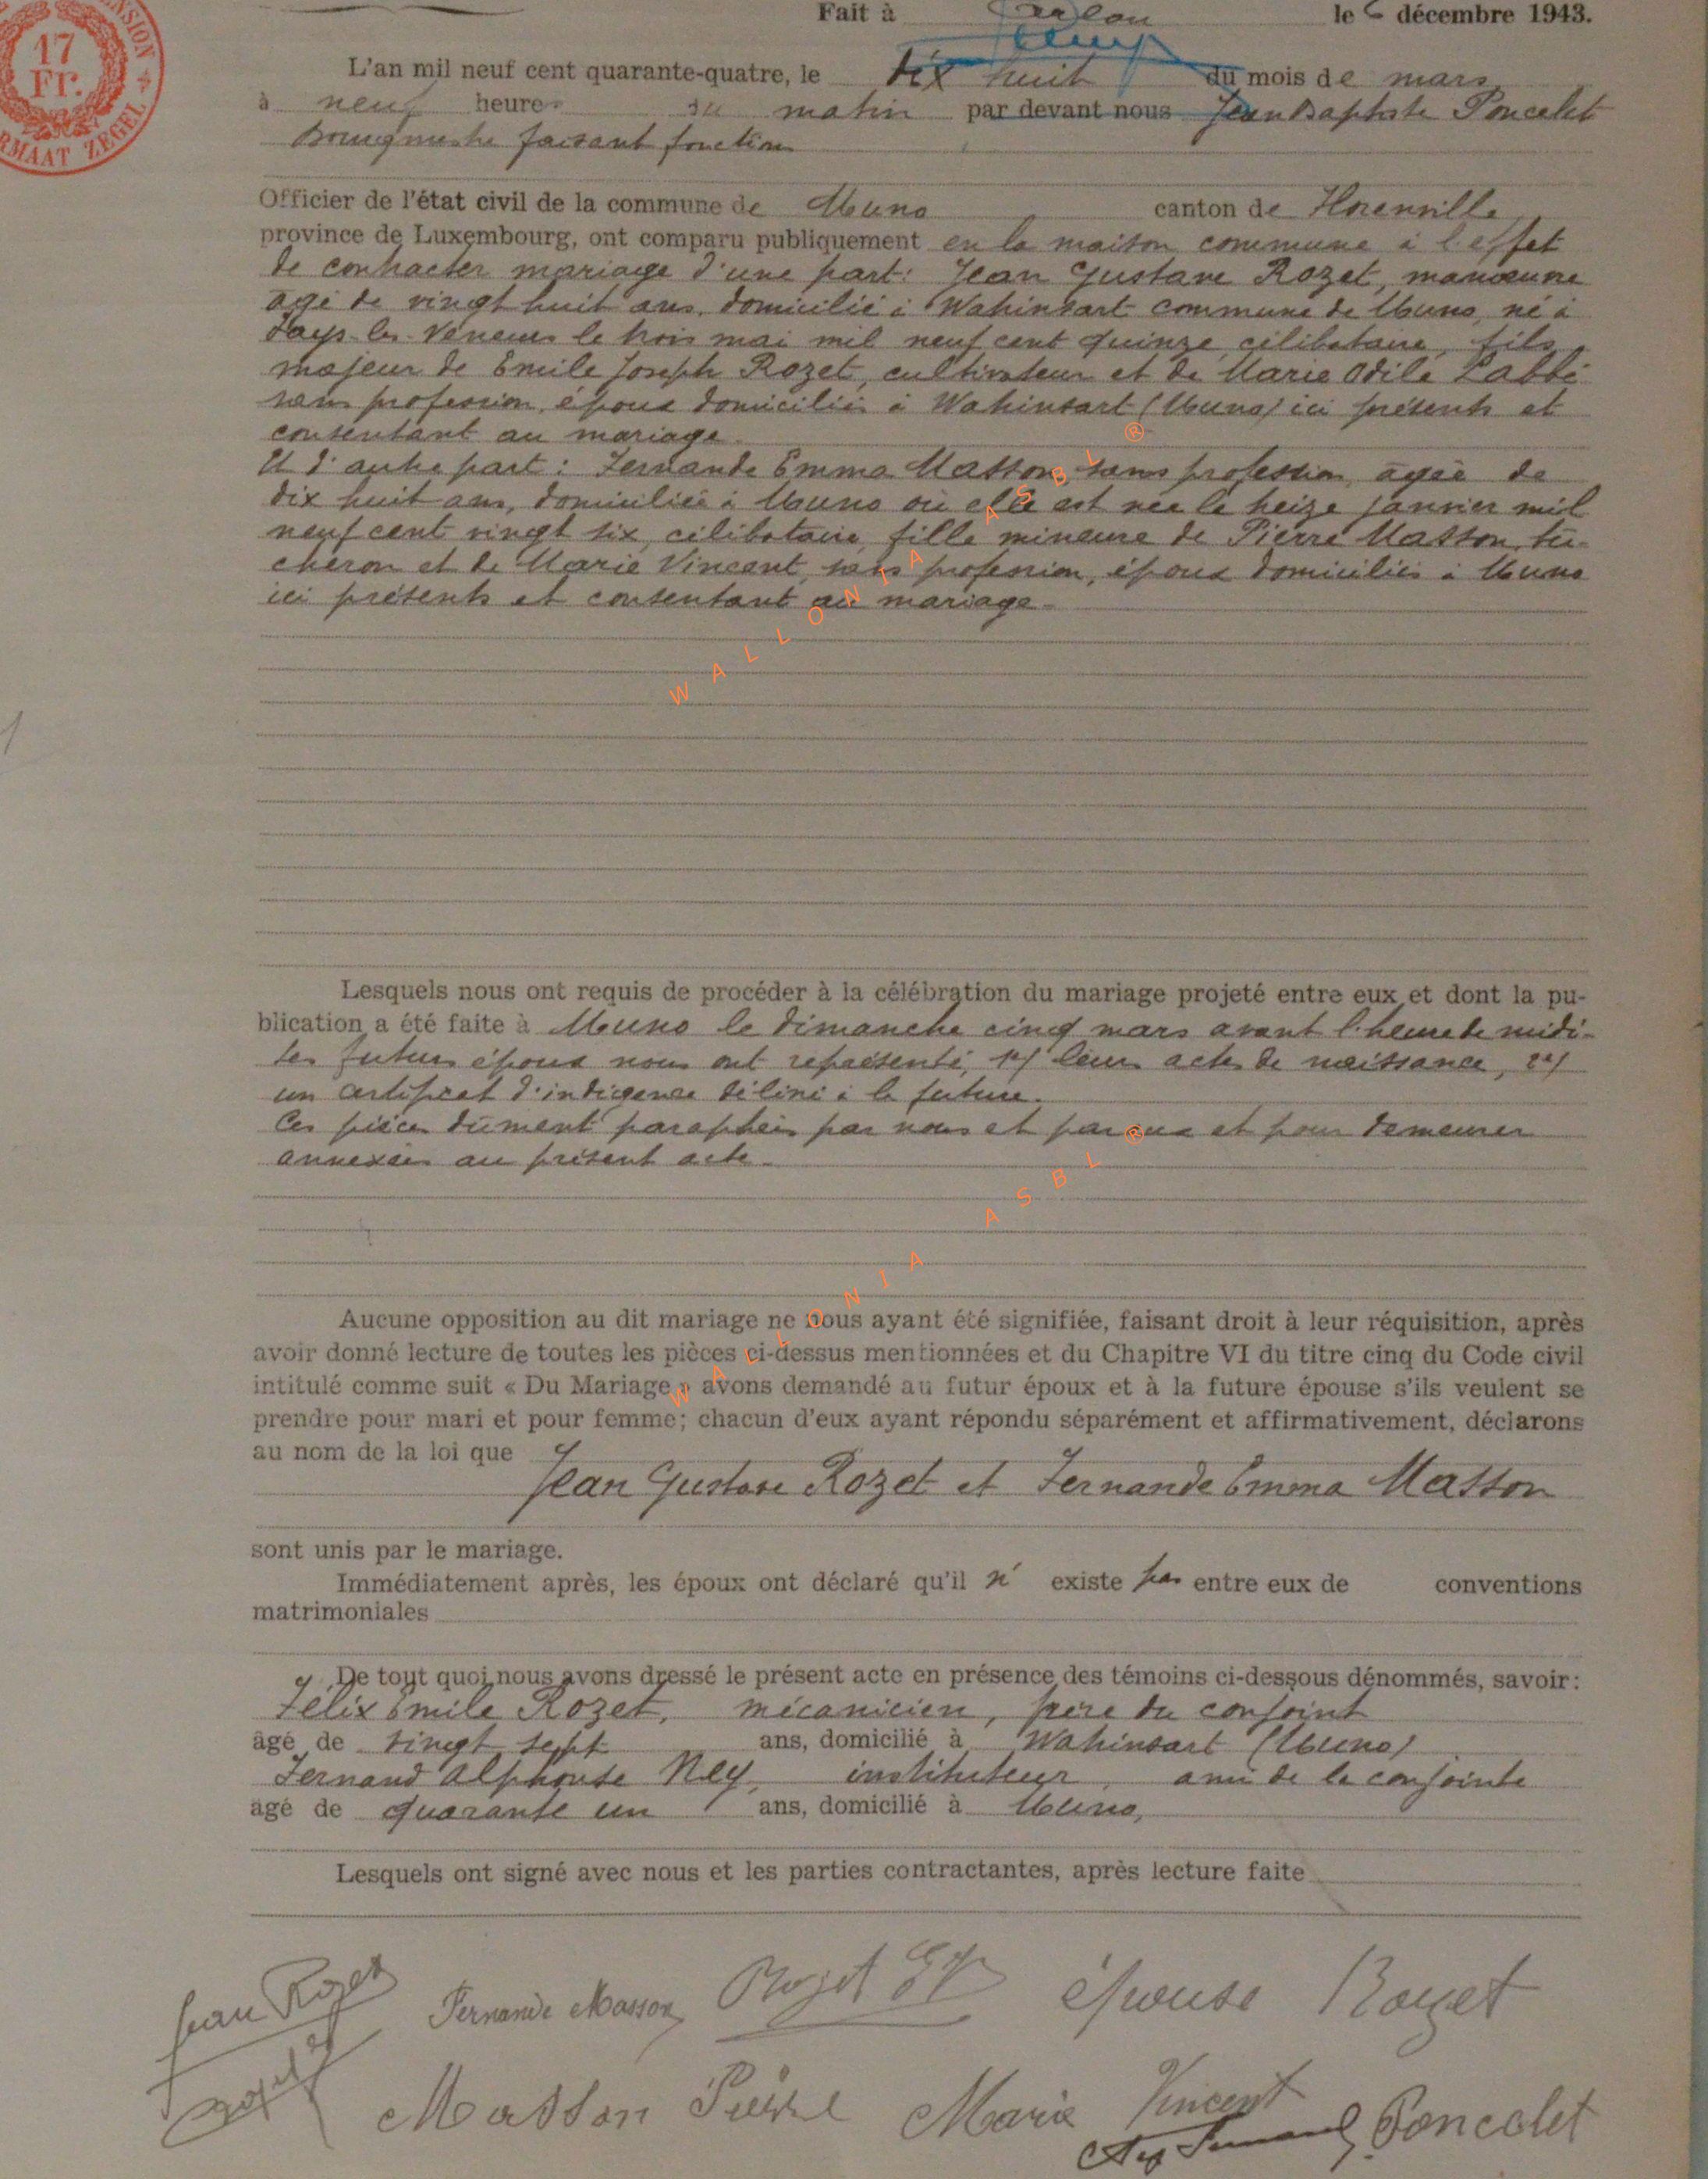 17
Fr.
Fait à Arlon le 6 décembre 1943.
L'an mil neuf cent quarante-quatre, le dix huit du mois de mars
à neuf heures du matin par devant nous Jean Baptiste Poncelet
Bourgmestre faisant fonction
Officier de l'état civil de la commune de Muno canton de Florenville
province de Luxembourg, ont comparu publiquement en la maison commune à l'effet
de contracter mariage d'une part: Jean Gustave Rozet, manœuvre
âgé de vingt huit ans, domicilié à Wahinsart commune de Muno, né à
Says-les-Veneurs le trois mai mil neuf cent quinze, célibataire, fils
majeur de Emile Joseph Rozet, cultivateur et de Marie Odile Labbé
sans profession, époux domiciliés à Wahinsart (Muno) ici présents et
consentant au mariage.
Et d'autre part: Fernande Emma Masson sans profession, âgée de
dix huit ans, domiciliée à Muno où elle est née le treize janvier mil
neuf cent vingt six, célibataire, fille mineure de Pierre Masson, bû-
cheron et de Marie Vincent, sans profession, époux domiciliés à Muno
ici présents et consentant au mariage.
WALLONIA ASBL ®
Lesquels nous ont requis de procéder à la célébration du mariage projeté entre eux et dont la pu-
blication a été faite à Muno le dimanche cinq mars avant l'heure de midi.
Les futurs époux nous ont représenté, 1°/ leurs actes de naissance, 2°/
un certificat d'indigence délivré à la future.
Ces pièces dûment paraphées par nous et par eux et pour demeurer
annexées au présent acte.
WALLONIA ASBL ®
Aucune opposition au dit mariage ne nous ayant été signifiée, faisant droit à leur réquisition, après
avoir donné lecture de toutes les pièces ci-dessus mentionnées et du Chapitre VI du titre cinq du Code civil
intitulé comme suit « Du Mariage » avons demandé au futur époux et à la future épouse s'ils veulent se
prendre pour mari et pour femme; chacun d'eux ayant répondu séparément et affirmativement, déclarons
au nom de la loi que
Jean Gustave Rozet et Fernande Emma Masson
sont unis par le mariage.
Immédiatement après, les époux ont déclaré qu'il n' existe pas entre eux de conventions
matrimoniales
De tout quoi nous avons dressé le présent acte en présence des témoins ci-dessous dénommés, savoir:
Félix Emile Rozet, mécanicien, frère du conjoint
âgé de vingt sept ans, domicilié à Wahinsart (Muno)
Fernand Alphonse Ney, instituteur, ami de la conjointe
âgé de quarante un ans, domicilié à Muno,
Lesquels ont signé avec nous et les parties contractantes, après lecture faite
Jean Rozet Fernande Masson Rozet épouse Rozet
Rozet Masson Pierre Marie Vincent
Ney Fernand Poncelet